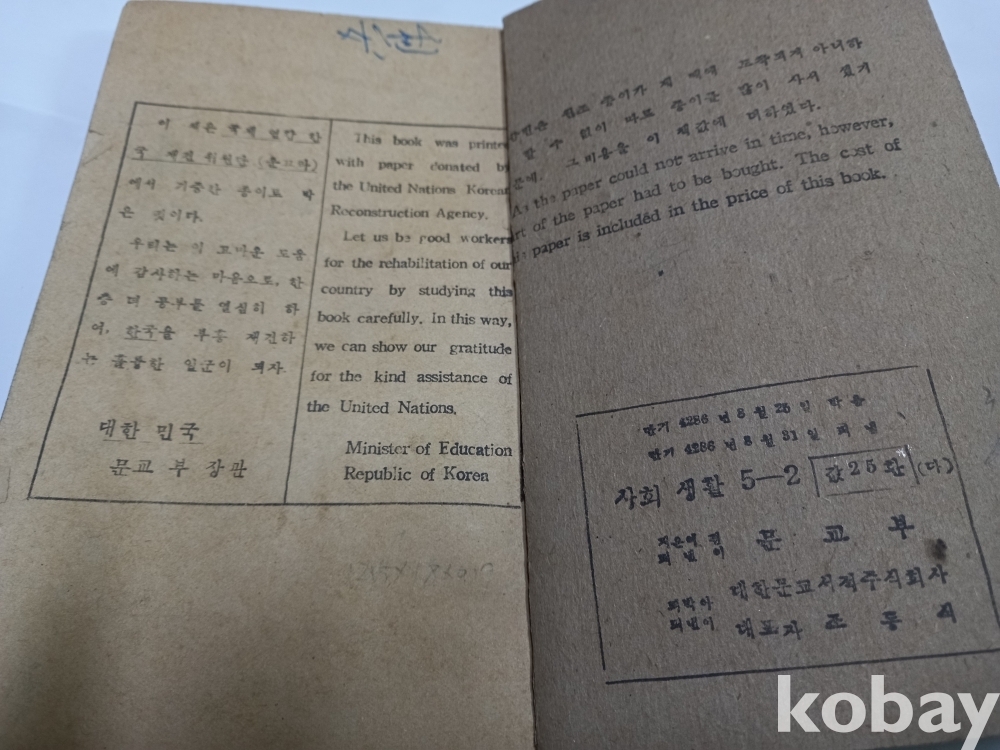 이 책은 국제 연합 한
국 재건 위원단 (운끄라)
에서 기증한 종이로 박
은 것이다.
우리는 이 고마운 도움
에 감사하는 마음으로, 한
층 더 공부를 열심히 하
여, 한국을 부흥 재건하
는 훌륭한 일군이 되자
대한 민국
문교 부 장관
This book was printe
with paper donated by
the United Nations Korean
Reconstruction Agency.
Let us be good workers
for the rehabilitation of our
country by studying this
book carefully. In this way,
we can show our gratitude
for the kind assistance of
the United Nations.
Minister of Education
Republic of Korea
종이가 제 때에 도착되지 아니하
할 수 없이 따로 종이를 많이 사서 썼기
문에, 그 비용을 이 책값에 더하였다.
As the paper could not arrive in time, however,
rt of the paper had to be bought. The cost of
paper is included in the price of this book.
단기 4286 년 8 월 25 일 박음
단기 4286 년 8 월 31 일 펴냄
사회 생활 5—2 값 25 환 (다)
지은이 겸
펴낸이 문 교 부
박아
펴낸이 대한문교서적주식회사
대표자 조 동 식
kobay